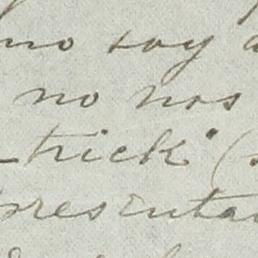 no soy a
no nos
trick" (
presenta